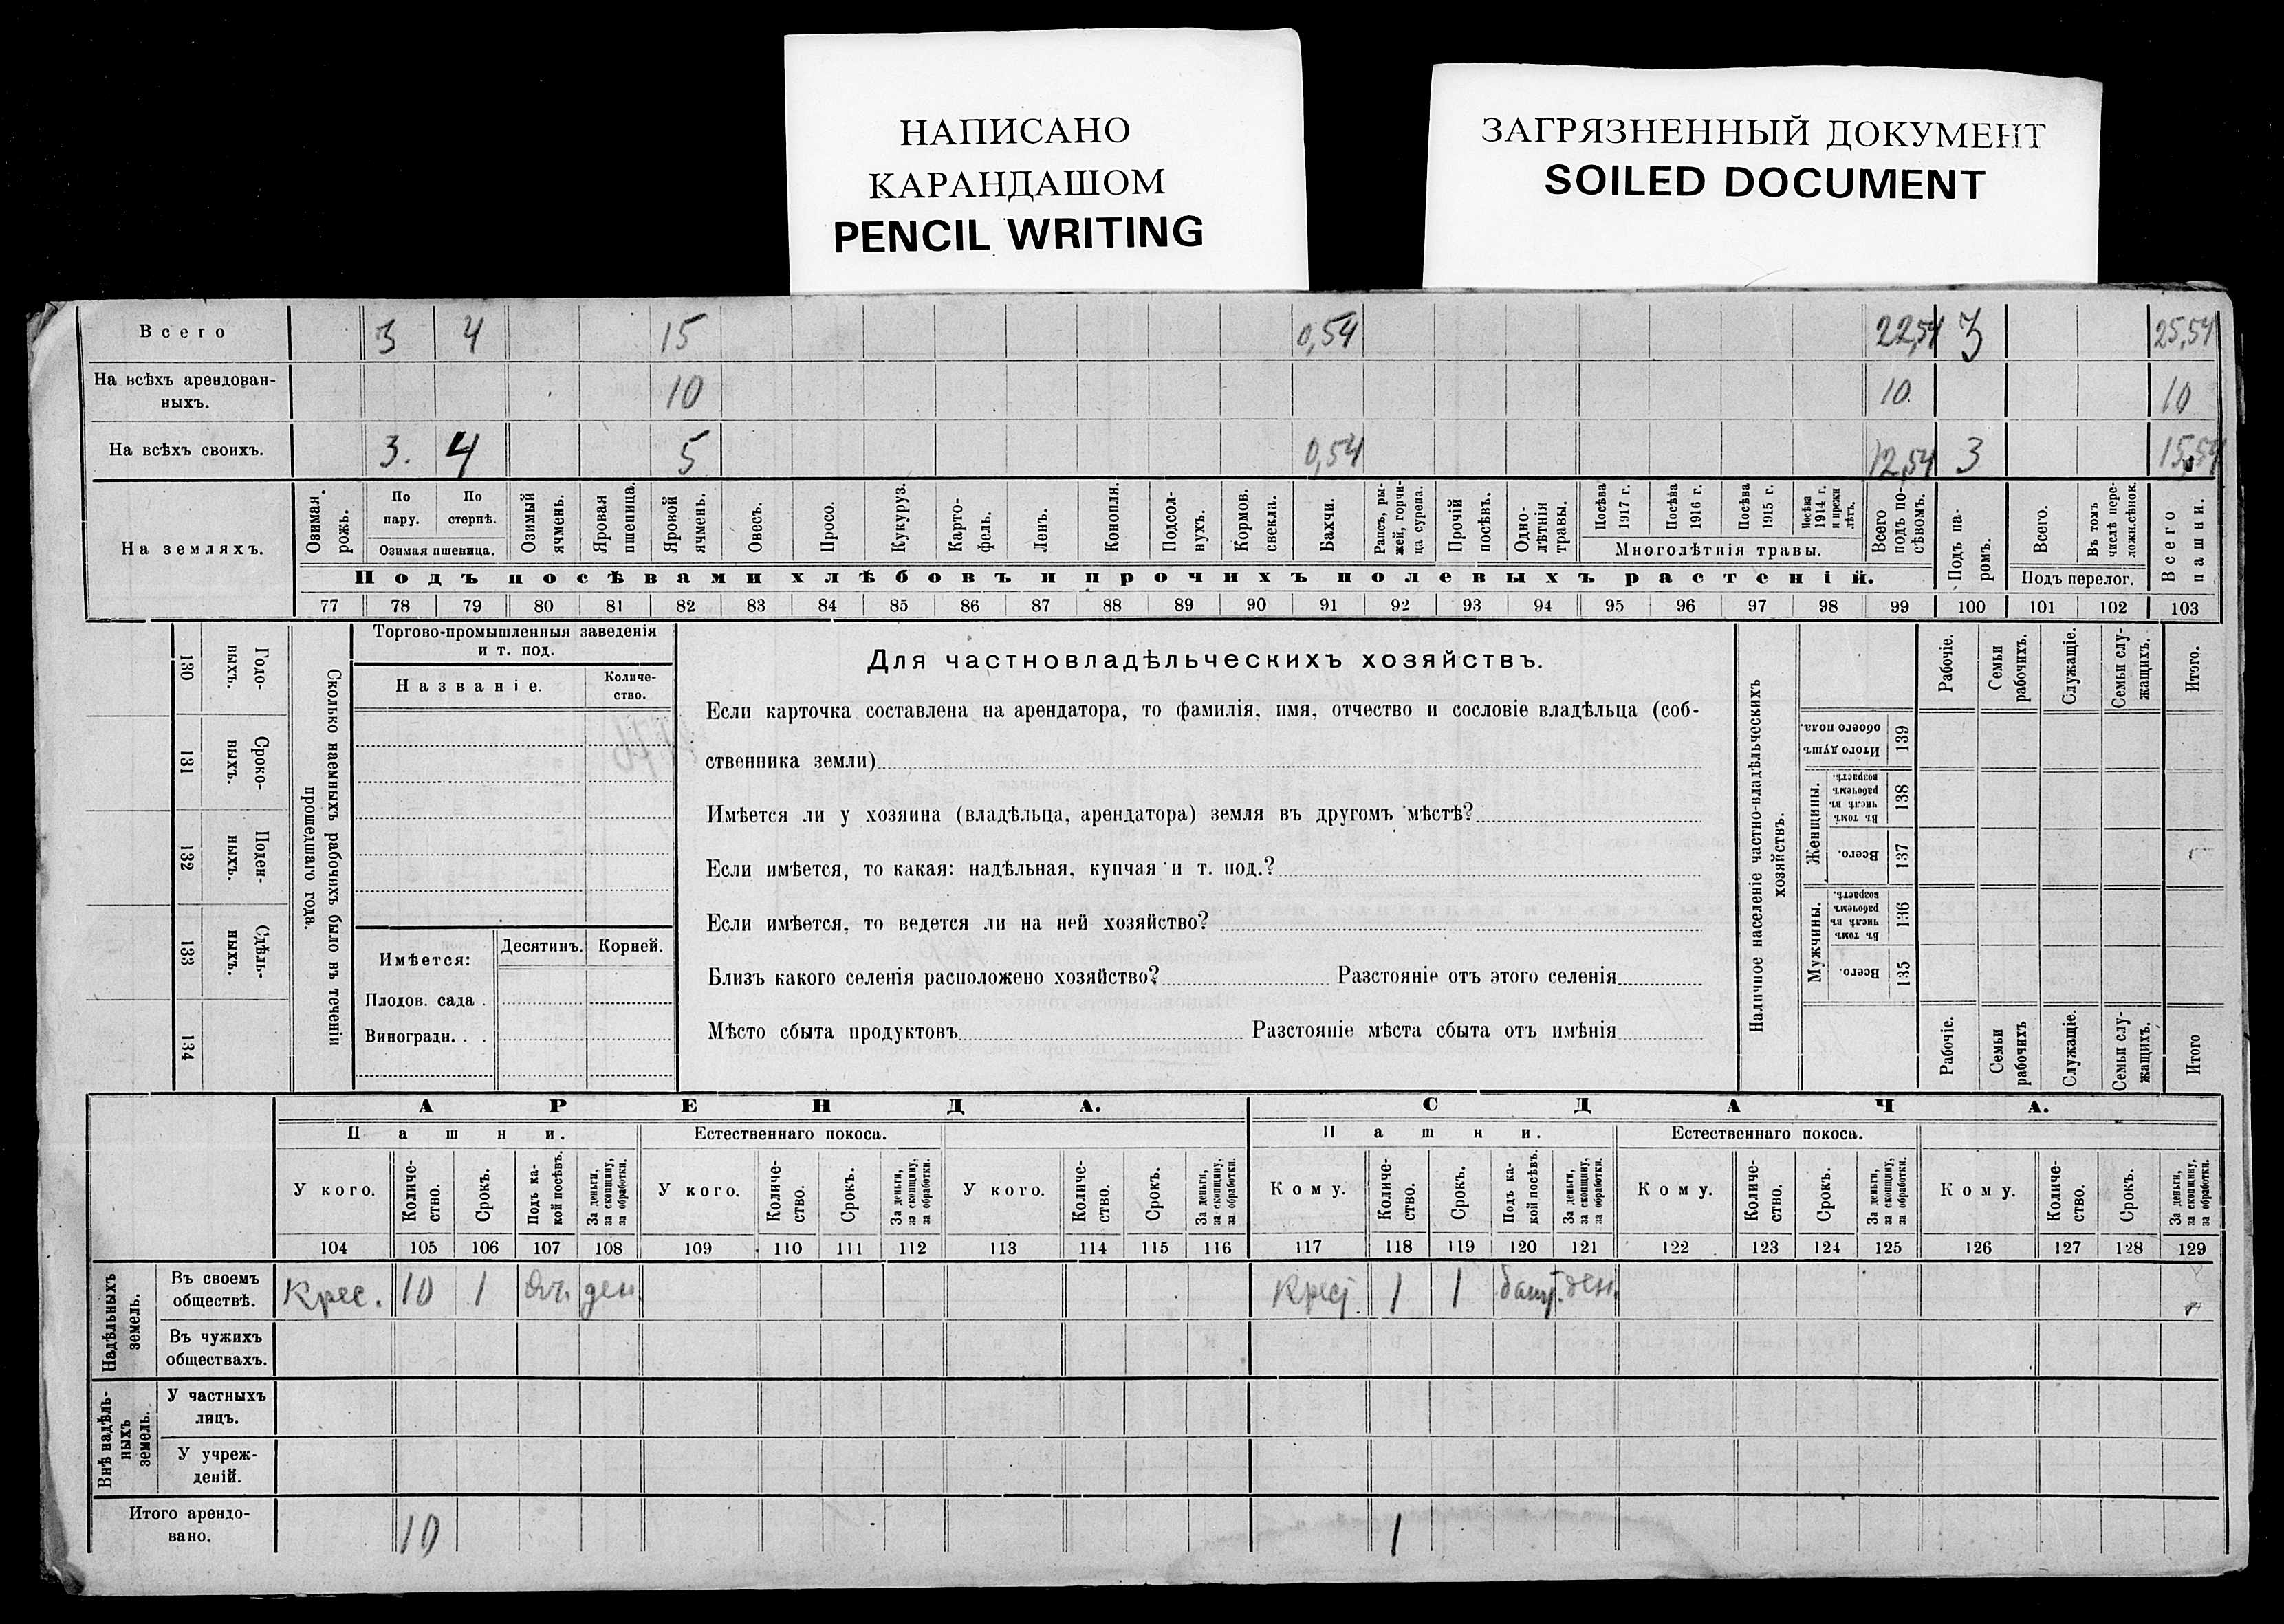 НАПИСАНО
КАРАНДАШОМ
PENCIL WRITING
ЗАГРЯЗНЕННЫЙ ДОКУМЕНТ
SOILED DOCUMENT
Всего 3 4 15 0,54 22,54 3 25,54
На всѣхъ арендован-
ныхъ. 10 10 10
На всѣхъ своихъ. 3. 4 5 0,54 12,54 3 15,54
На земляхъ.
Озимая рожь.
По пару.
По стернѣ.
Озимая пшеница.
Озимый ячмень.
Яровая пшеница.
Яровой ячмень.
Овесъ.
Просо.
Кукуруз.
Карто-
фель.
Ленъ.
Конопля.
Подсол-
нухъ.
Кормов.
свекла.
Бахчи.
Рапсъ, ры-
жей, горчи-
ца сурепа.
Прочій
посѣвъ.
Одно-
лѣтнія
травы.
Посѣва
1917 г.
Посѣва
1916 г.
Посѣва
1915 г.
Посѣва
1914 г.
и прежн
лѣтъ.
Многолѣтнія травы.
Всего
подъ по-
сѣвомъ.
Подъ па-
ромъ.
Всего.
Въ томъ
числѣ пере-
лож.сѣнок.
Подъ перелог.
Всего
пашни.
Подъ посѣвами хлѣбовъ и прочихъ полевыхъ растеній.
77 78 79 80 81 82 83 84 85 86 87 88 89 90 91 92 93 94 95 96 97 98 99 100 101 102 103
130 Годо-
ныхъ.
131 Сроко-
выхъ.
132 Поден-
ныхъ.
133 Сдѣль-
ныхъ.
134
Сколько наемныхъ рабочихъ было въ теченіи
прошедшаго года.
Торгово-промышленныя заведенія
и т. под.
Названіе.
Количе-
ство.
Имѣется:
Десятинъ.
Корней.
Плодов. сада .
Виноградн. . .
Для частновладѣльческихъ хозяйствъ.
Если карточка составлена на арендатора, то фамилія, имя, отчество и сословіе владѣльца (соб-
ственника земли)
Имѣется ли у хозяина (владѣльца, арендатора) земля въ другомъ мѣстѣ?
Если имѣется, то какая: надѣльная, купчая и т. под.?
Если имѣется, то ведется ли на ней хозяйство?
Близъ какого селенія расположено хозяйство? Разстояніе отъ этого селенія
Мѣсто сбыта продуктовъ Разстояніе мѣста сбыта отъ имѣнія
Наличное населеніе частно-владѣльческихъ
хозяйствъ.
Рабочіе.
Семьи
рабочихъ.
Служащіе.
Семьи слу-
жащихъ.
Итого.
Итого душъ
обоего пола. 139
Женщины.
Въ томъ
числѣ въ
рабочемъ
возрастѣ. 138
Всего. 137
Мужчины.
Въ томъ
числѣ въ
рабочемъ
возрастѣ. 136
Всего. 135
Рабочіе.
Семьи
рабочихъ
Служащіе.
Семьи слу-
жащихъ.
Итого
АРЕНДА. СДАЧА.
Пашни. Естественнаго покоса. Пашни. Естественнаго покоса.
У кого.
Количе-
ство.
Срокъ.
Подъ ка-
кой посѣвъ.
За деньги,
за скопщину,
за обработки.
У кого.
Количе-
ство.
Срокъ.
За деньги,
за скопщину,
за обработки.
У кого.
Количе-
ство.
Срокъ.
За деньги,
за скопщину,
за обработки.
Кому.
Количе-
ство.
Срокъ.
Подъ ка-
кой посѣвъ.
За деньги,
за скопщину,
за обработки.
Кому.
Количе-
ство.
Срокъ.
За деньги,
за скопщину,
за обработки.
Кому.
Количе-
ство.
Срокъ.
За деньги,
за скопщину,
за обработки.
104 105 106 107 108 109 110 111 112 113 114 115 116 117 118 119 120 121 122 123 124 125 126 127 128 129
Надѣльныхъ
земель.
Въ своемъ
обществѣ. Крес. 10 1 ден. 1 1 ден.
Въ чужихъ
обществахъ.
Внѣ надѣль-
ныхъ
земель.
У частныхъ
лицъ.
У учреж-
деній.
Итого арендо-
вано. 10 1